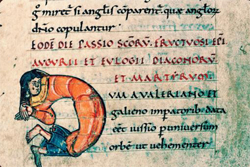 g miret si anglis coparent quæ anglor
drio copulantur
EODE DIE PASSIO SCORU FRUCTUOSI EPI
ET EULOGII DIACONORU
ET MARTYRUM
UM AVALERIANO ET
galieno impatorib data
eet iussio p universum
orbe ut vehementer